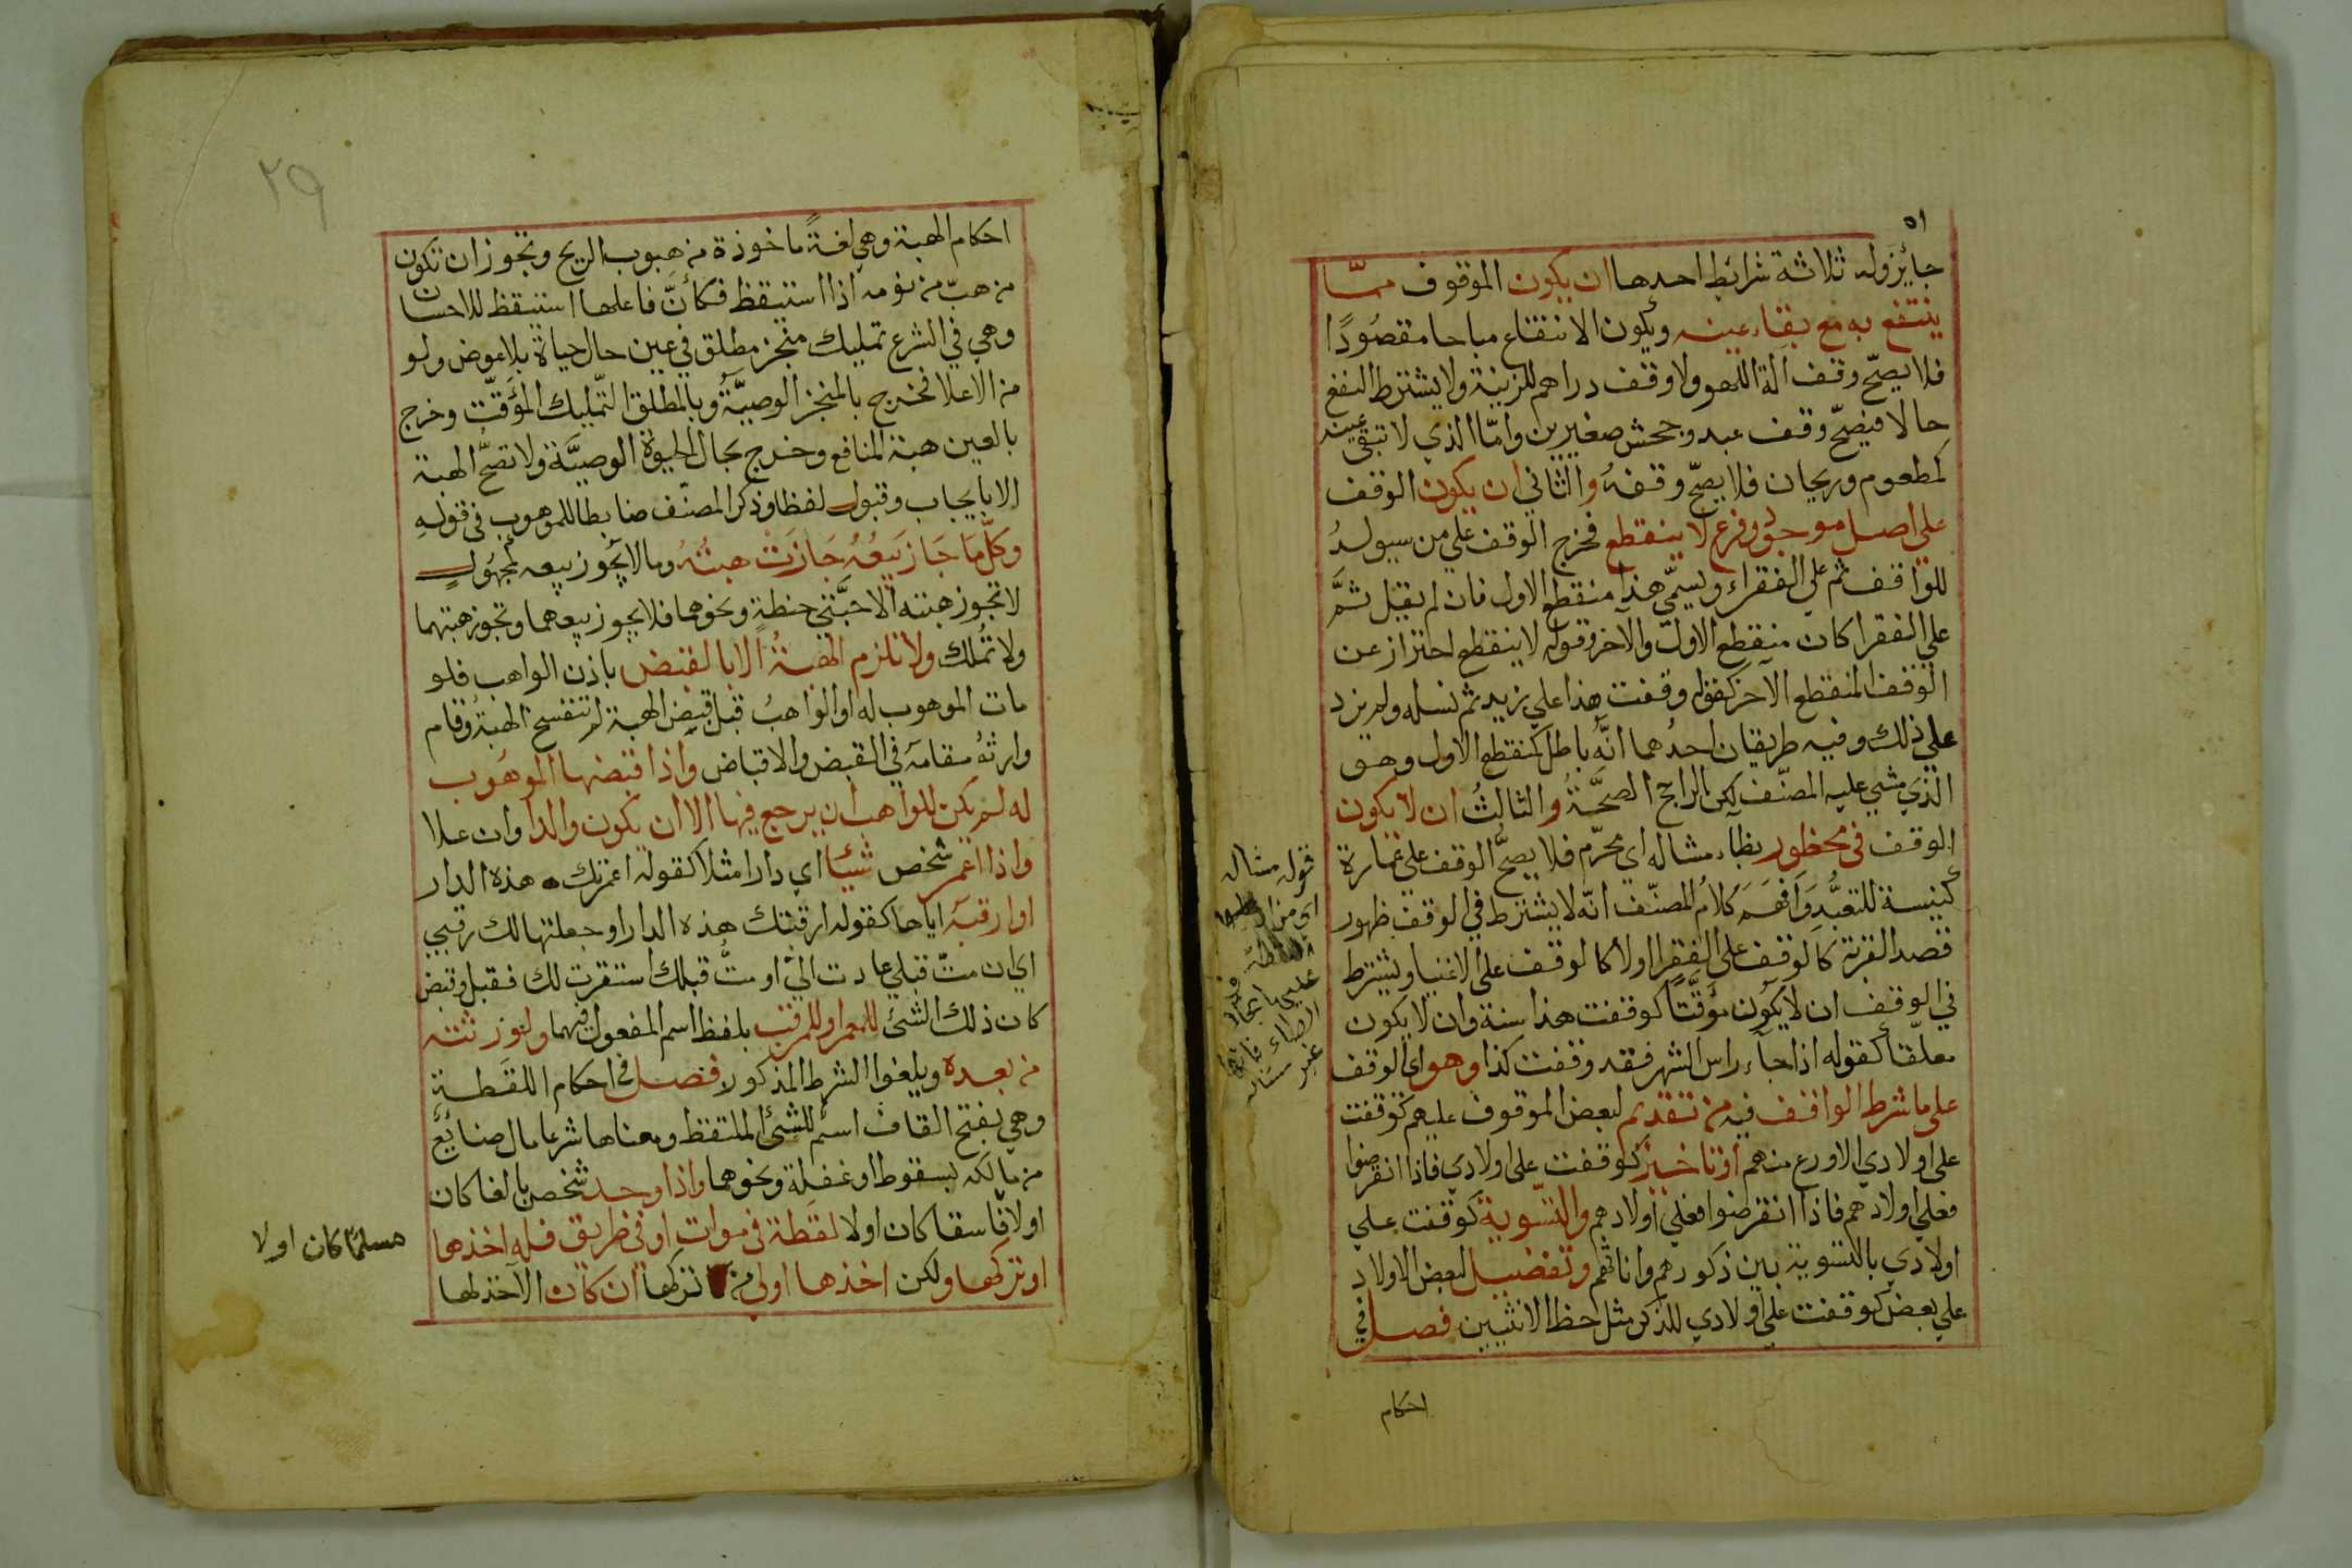 ٥١
جايز وله ثلاثة شرائط احدها ان يكون الموقوف ممّا
ينتفع به مع بقاء عينه ويكون الانتفاع مباحا مقصُودًا
فلا يصحّ وقف آلة اللهو ولا وقف دراهم للزينة ولا يشترط النفع
حالا فيصحّ وقف عبد وجحش صغيرين وامّا الذي لا تبقى عينه
كمطعوم وريحان فلا يصحّ وقفهُ والثاني ان يكون الوقف
على اصل موجود وفرع لا ينقطع فخرج الوقف على من سيولدُ
للواقف ثم على الفقراء ويسمّى هذا منقطع الاول فان لم يقل ثمَّ
على الفقرا كان منقطع الاول والآخر وقوله لا ينقطع احتراز عن
الوقف المنقطع الآخر كقوله وقفت هذا على زيد ثم نسله ولم يزد
على ذلك وفيه طريقان احدُهما انّهُ باطل كمنقطع الاول وهو
الذي مشي عليه المصنّف لكن الراجح الصحَّةُ والثالثُ ان لا يكون
الوقف في محظور بظاء مشاله اي محرّم فلا يصحُّ الوقف على عمارة
كنيسة للتعبُّدِ وَافهَمَ كلامُ المصنّف انّه لا يشترط في الوقف ظهور
قصد القربة كالوقف على الفقرا اولا كالوقف على الاغنيا ويشترط
في الوقف ان لا يكون مؤقّتًا كوقفت هذا سنة وان لا يكون
معلّقا كقوله اذا جاء راس الشهر فقد وقفت كذا وهو اي الوقف
على ما شرط الواقف فيه من تقديم لبعض الموقوف عليهم كوقفت
على اولادي الاورع منهم او تاخير كوقفت على اولادي فاذا انقرضوا
فعلى اولادهم فاذا انقرضوا فعلى اولادهم والتسوية كوقفت على
اولادي بالتسوية بين ذكورهم واناثهم وتفضيل لبعض الاولاد
على بعض كوقفت على اولادي للذكر مثل حظ الانثيين فصل في
احكام
قوله مشاله
٢٩
احكام الهبة وهي لغةً ماخوذة من هبوب الريح وتجوز ان تكون
من هبّ من نومه اذا استيقظ فكأنّ فاعلها استيقظ للاحسان
وهي في الشرع تمليك منجز مطلق في عين حال حياة بلا عوض ولو
من الاعلا فخرج بالمنجز الوصيَّة وبالمطلق التّمليك المؤقّت وخرج
بالعين هبة المنافع وخرج بحال الحيوة الوصيَّة ولا تصحُّ الهبة
الا بايجاب وقبول لفظا وذكر المصنّف ضابطا للموهوب في قولهِ
وكلّ مَا جَاز بَيعُهُ جَازَتْ هبتُهُ وما لا يجوز بيعه كمجهُولٍ
لا تجوز هبته الا حبَّتي حنطةٍ ونحوهما فلا يجوز بيعهما وتجوز هبتهما
ولا تُملك ولا تلزم الهبةُ الا بالقبض باذن الواهب فلو
مات الموهوب له او الواهبُ قبل قبض الهبة لم تنفسخ الهبةُ وقام
وارثهُ مقامه في القبض والاقباض واذا قبضها الموهُوب
له لم يكن للواهب ان يرجع فيها الا ان يكون والدا وان علا
واذا اعمر شخص شيئا اي دارا مثلا كقوله اعمرتك هذه الدار
او ارقبه اياها كقوله ارقبتك هذه الدار او جعلتها لك رقبي
اي ان متّ قبلي عادت اليّ او متُّ قبلك استقرت لك فقبل وقبض
كان ذلك الشئ للمعمر او للمرقب بلفظ اسم المفعول فيهما ولورثته
من بعده ويلغوا الشرط المذكور فصل في احكام اللقَطة
وهي بفتح القاف اسم للشئ الملتقظ ومعناها شرعا مال ضائعٌ
من مالكه بسقوط او غفلة ونحوهما واذا وجد شخص بالغا كان
اولا فاسقا كان اولا لقَطة في موات او في طريق فله اخذها
او تركها ولكن اخذها اولى من تركها ان كان الآخذ لها
مسلمًا كان اولا